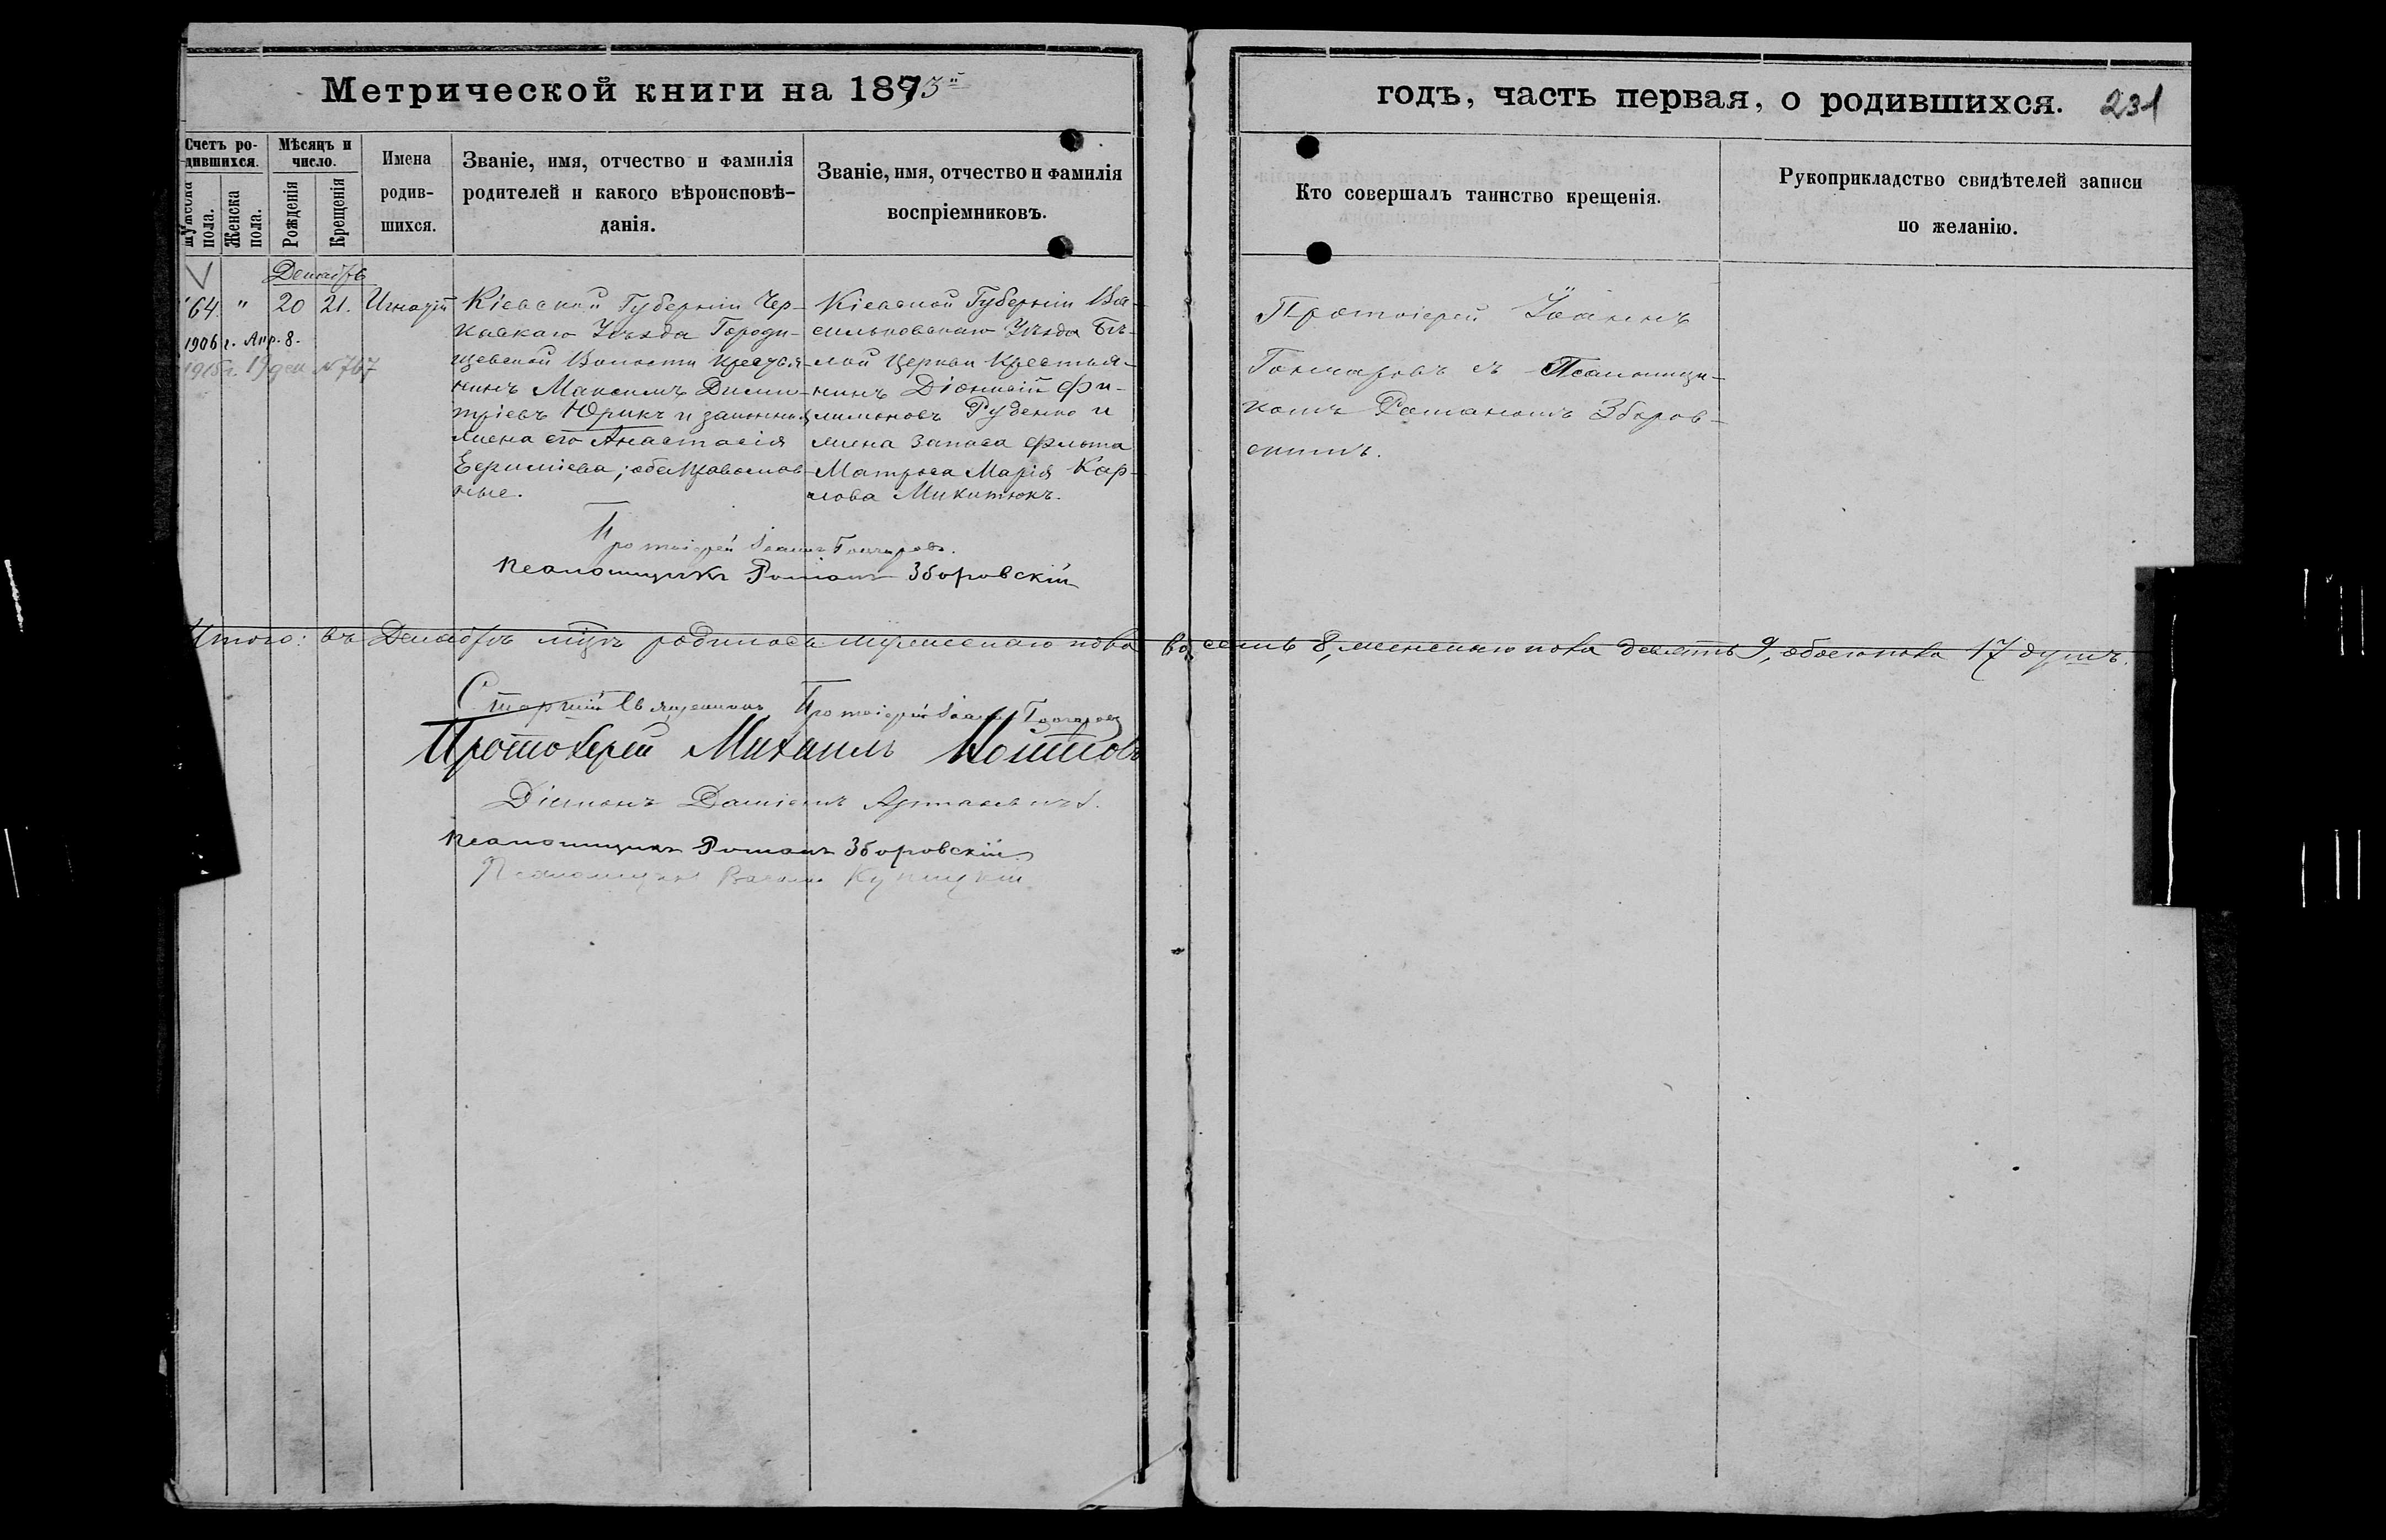 Метрической книги на 1893й
годъ, часть первая, о родившихся. 231
Счетъ родившихся.
Мужеска пола.
Женска пола.
Мѣсяцъ и число.
Рожденія
Крещенія
Имена
родив-
шихся.
Званіе, имя, отчество и фамилія
родителей и какого вѣроисповѣ-
данія.
Званіе, имя, отчество и фамилія
воспріемниковъ.
Кто совершалъ таинство крещенія.
Рукоприкладство свидѣтелей записи
по желанію.
Декабрь
64 " 20 21. Игнатій
1906 г. Апр. 8.
1915 г. 19 дек №767
Кіевской Губерніи Чер-
каскаго Уѣзда Городи-
щевской Волости крестья-
нинъ Максимъ Дими-
тріевъ Юрикъ и законная
жена его Анастасія
Ефимiева; оба Православ-
ные.
Кіевской Губерніи Ва-
сильковскаго Уѣзда Бѣ-
лой Церкви Крестья-
нинъ Діонисій Фи-
лимоновъ Руденко и
жена запаса флота
Матроса Марія Кар-
пова Микитюкъ.
Протоіерей Іоаннъ
Гончаровъ съ Псаломщи-
комъ Романомъ Зборов-
скимъ.
Протоіерей Іоаннъ Гончаровъ.
Псаломщикъ Романъ Зборовскій
Итого: въ Декабрѣ мцѣ родилось мужескаго пола восемь 8, женскаго пола девять 9, обоего пола 17 душъ.
Старшій Священникъ Протоіерей Іоаннъ Гончаровъ
Протоіерей Михаилъ
Діаконъ
Псаломщикъ Романъ Зборовскій
Псаломщикъ